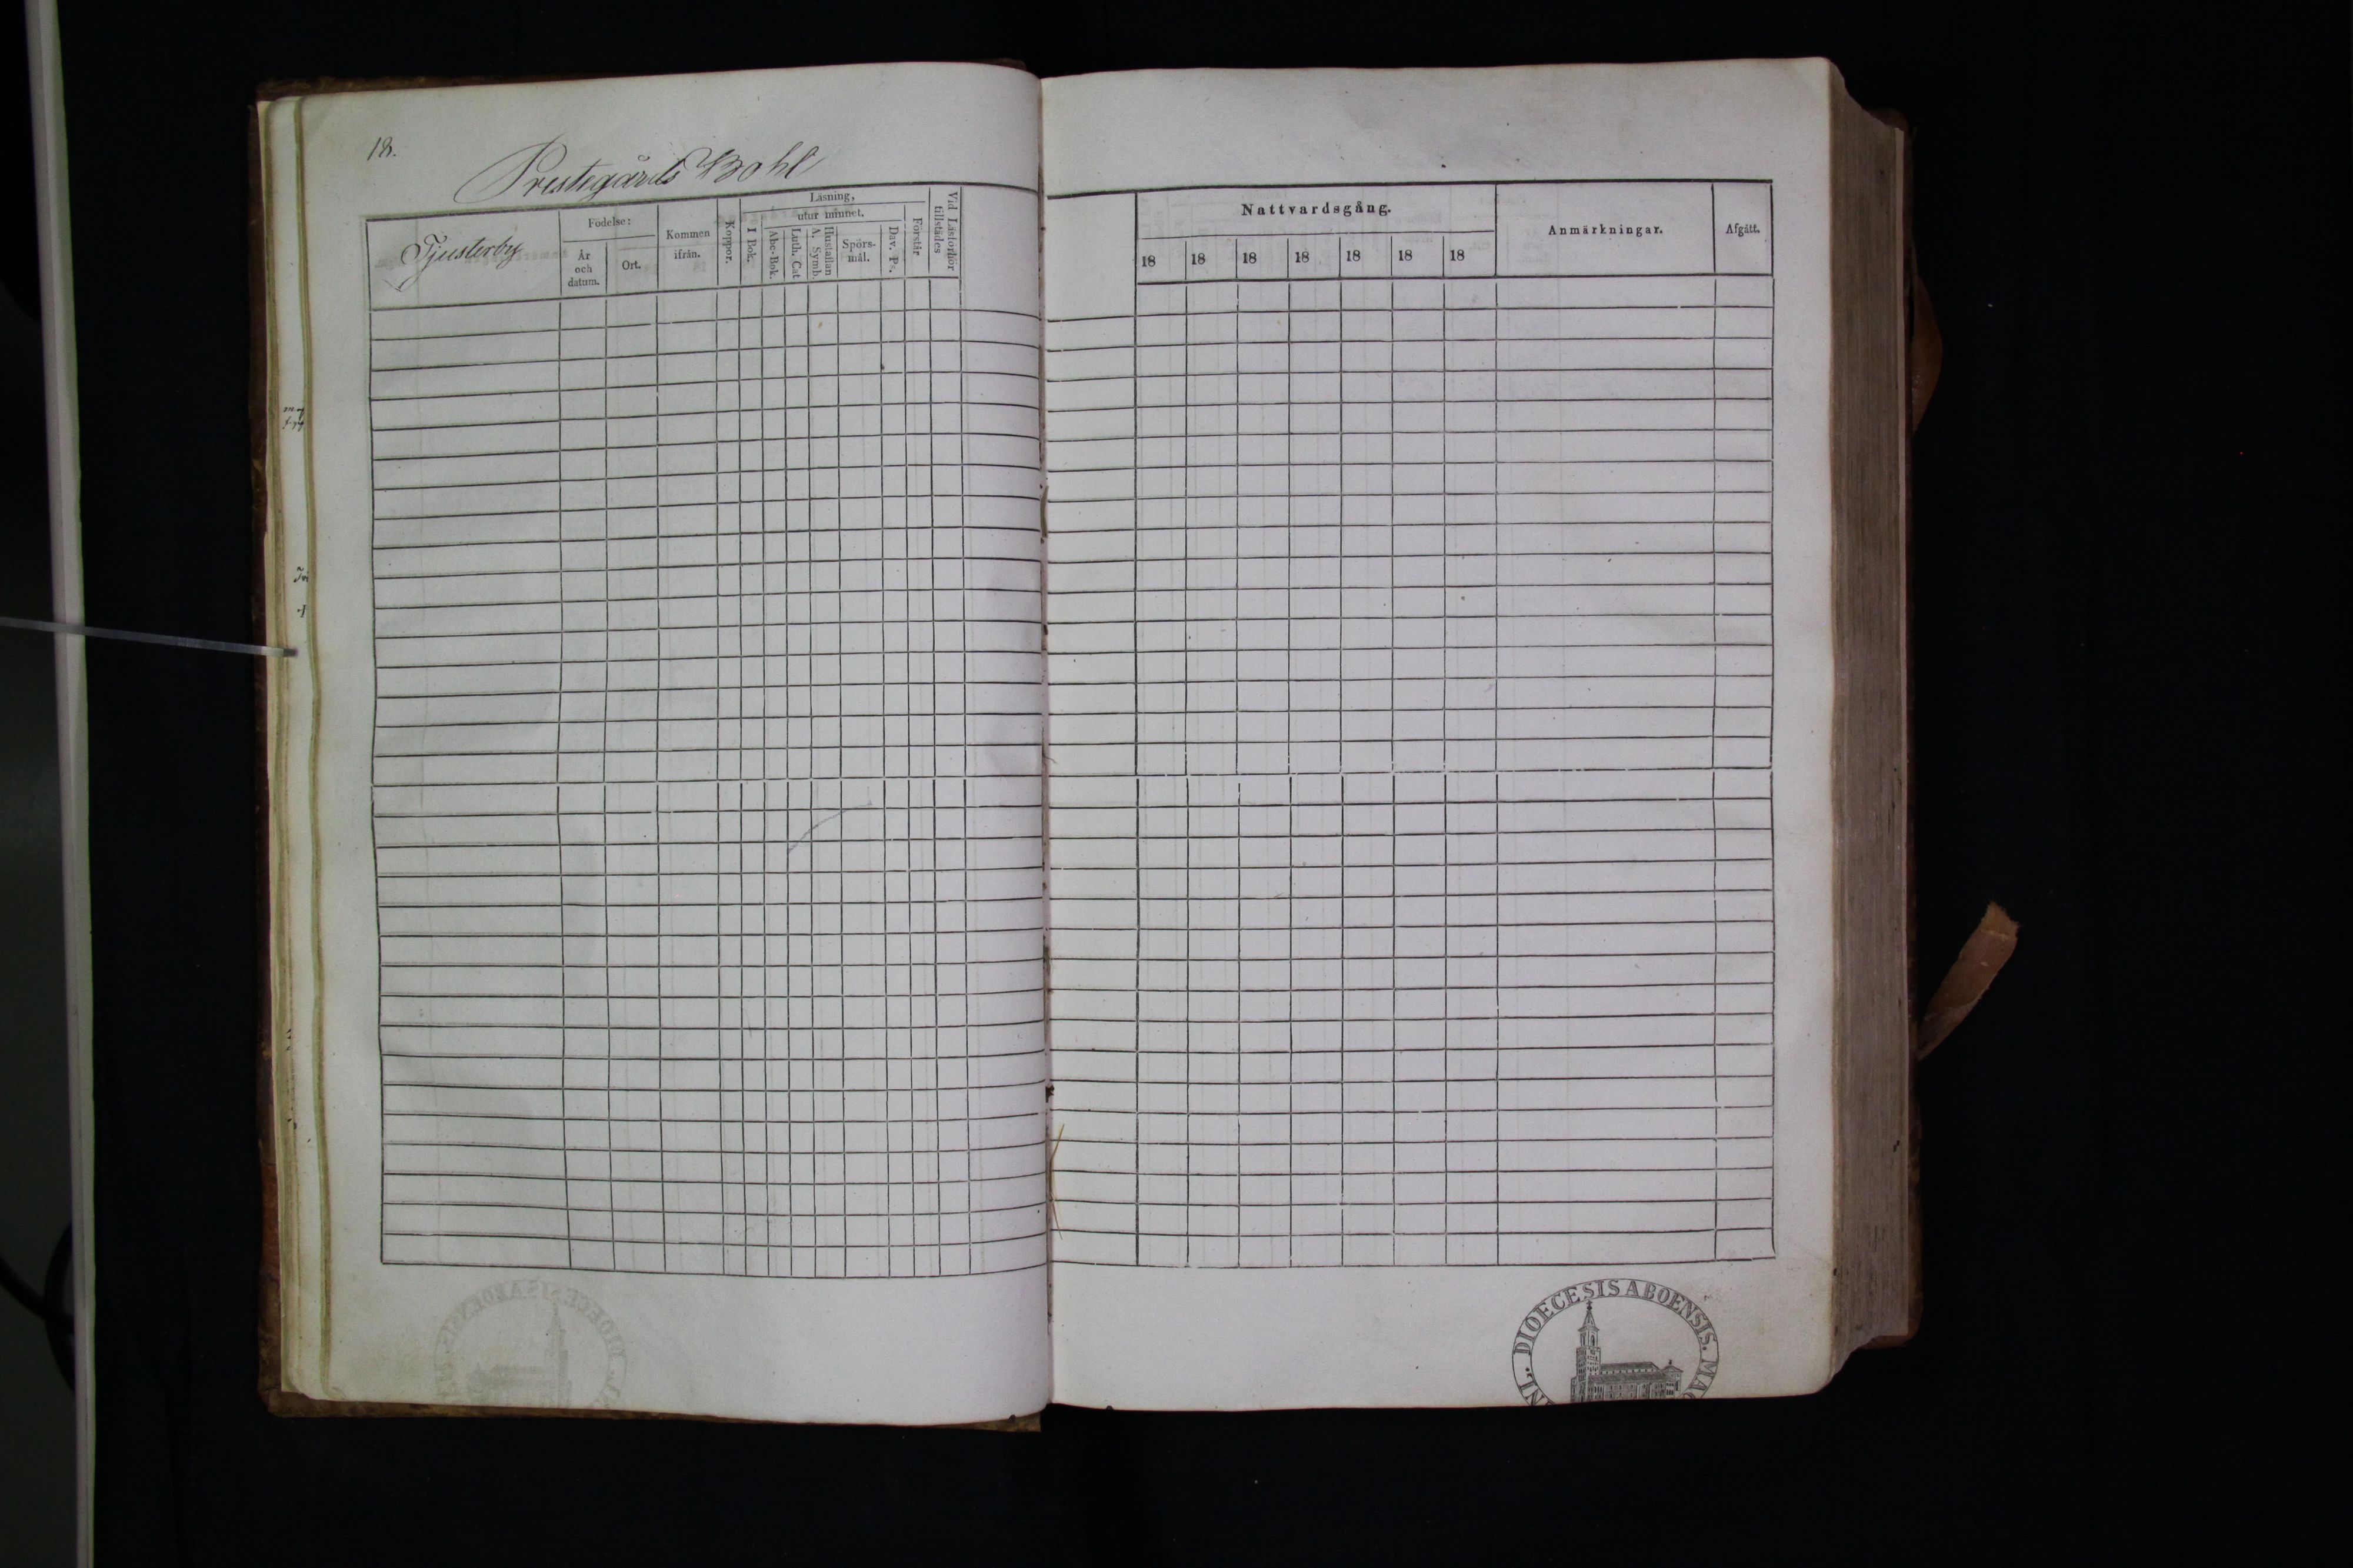 18.
Prestegårds Bohl
Tjusterby
Födelse:
År
och
datum.
Ort.
Kommen
ifrån.
Koppor.
Läsning,
utur minnet.
I Bok.
Abc-Bok.
Luth. Cat.
Hustaflan
A. Symb.
Spörs-
mål.
Dav. Ps.
Förstår
Vid Läsförhör
tillstädes
Nattvardsgång.
18 18 18 18 18 18 18
Anmärkningar.
Afgått.
DIOECESIS ABOENSIS. MAG